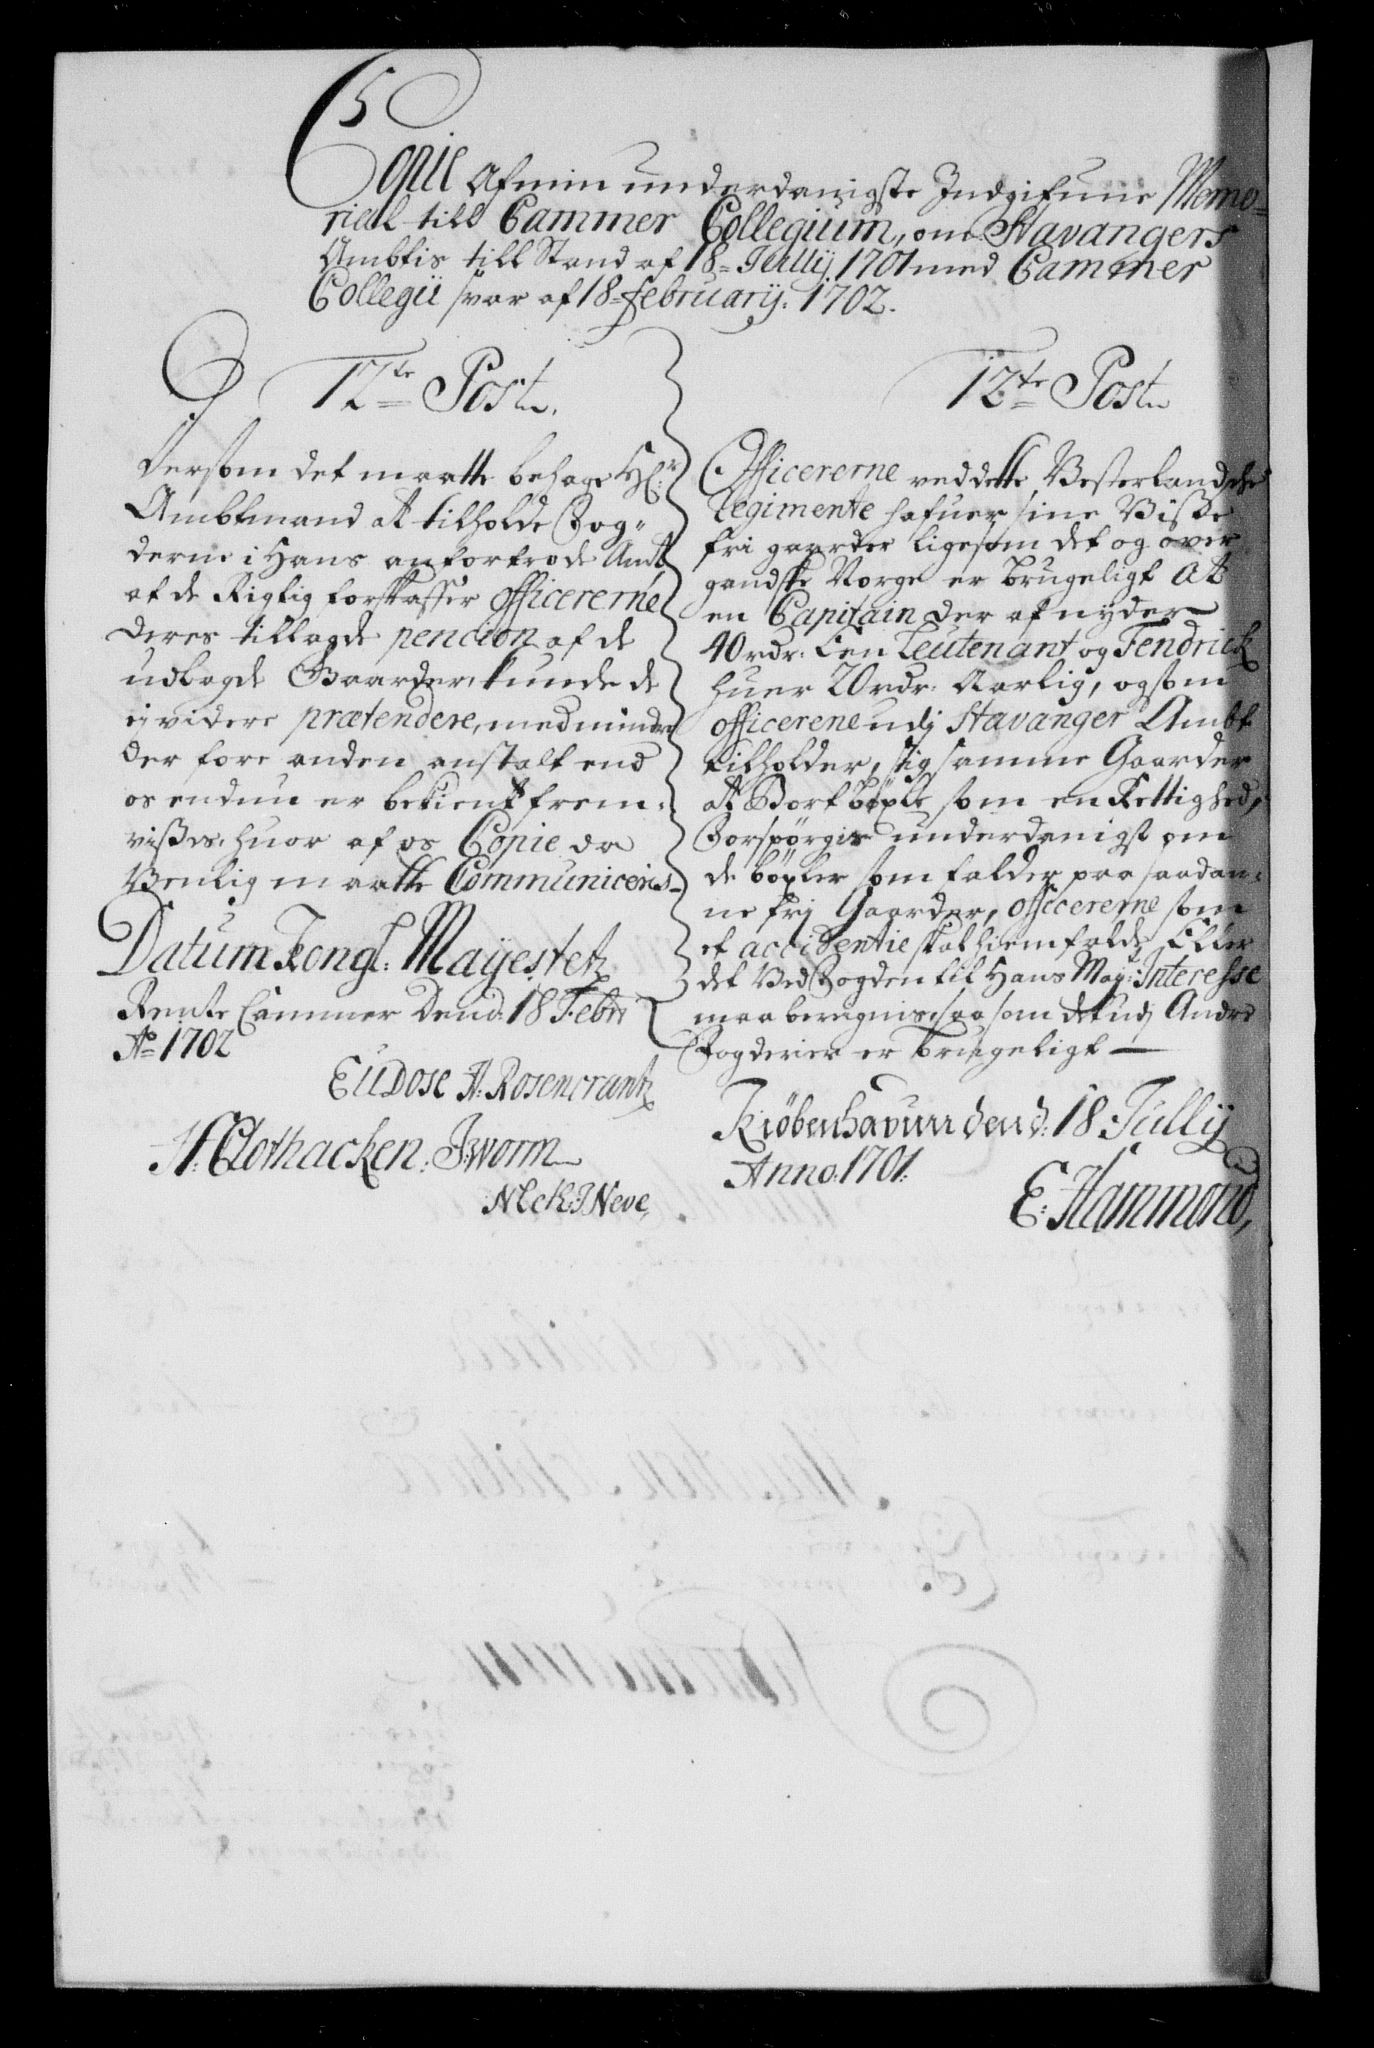 Copie Af min underdanigste Indgifune Memo-
rial till Cammer Collegium, om Stavangers
Ambtis till Stand af 18 Jullij 1701 med Cammer
Collegii svar af 18 februarij. 1702.
12te Post.
Dersom det maatte behage Hr:
Ambtmand at tilholde Fog-
derne i Hans anfortrode Amt,
at de Rigtig forskaffer officererne
deres tillagde pencion af de
udlagde Gaarder, kunde de
ej videre prætendere, med mindre
der fore anden anstalt end
os endnu er bekient frem-
vißes, huor af os Copie da
Venlig maatte Communiceris
Datum Kongl: Mayestetz
Rente Cammer Dend 18 Febr:
Ao 1702
Eudose H: Rosencrantz
H: Clothacken: J: worm
N Eck: J Neve,
12te Post
Officererne ved dette Vesterlandsche
Regimente hafuer sine Viße
fri gaarder ligesom det og over
gandske Norge er brugeligt At
en Capitain der af nyder
40 rdr: En Leutenant og Fendrick
huer 20 rdr: Aarlig, og som
officerene udj Stavanger Ambt
tilholder sig samme Gaarder
at Bortböxle som en Rettighed,
Forspörgis underdanigst om
de böxler som falder paa saadan-
ne frj Gaarder, officererne som
et accidentie skal hiemfalde, Eller
det Ved Fogden til Hans May: Interesse
maa beregnis, saasom det udj Andre
Fogderier er brugeligt —
Kiöbenhavn dend: 18 Jullij
Anno 1701:
E: Hammond,